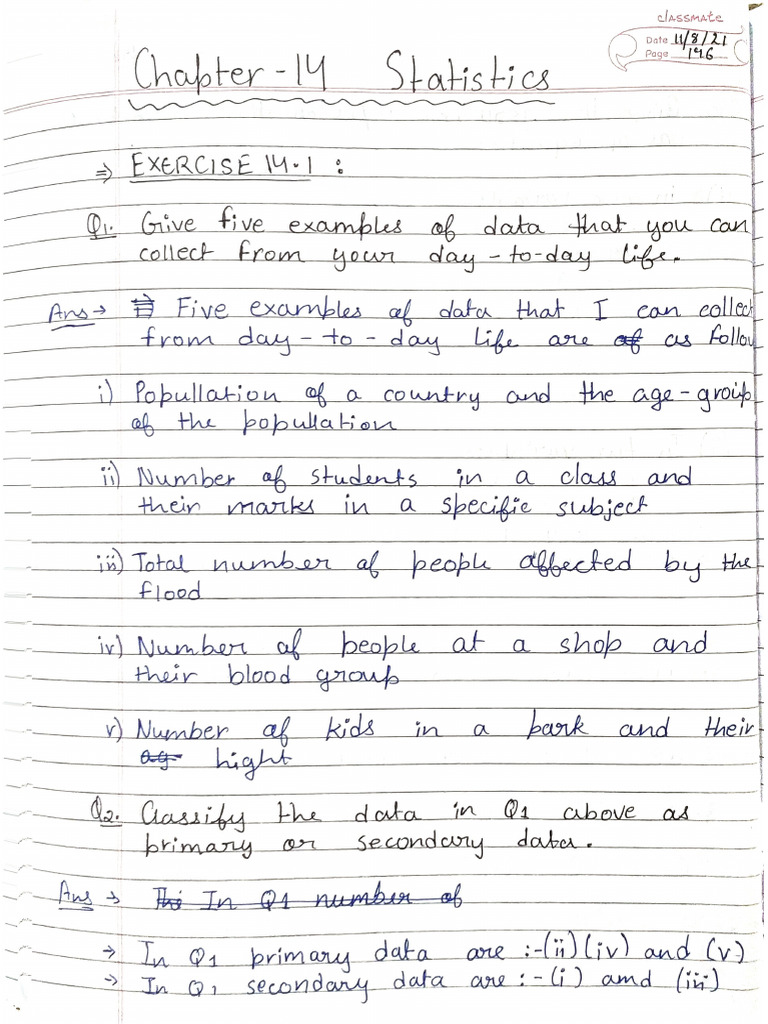 classmate
Date 11/8/21
Page 146
Chapter-14 Statistics
⇒ EXERCISE 14.1 :
Q1. Give five examples of data that you can
collect from your day-to-day life.
Ans → Five examples of data that I can collect
from day-to-day life are of as follow
i) Popullation of a country and the age-group
of the popullation
ii) Number of students in a class and
their marks in a specific subject
iii) Total number of people affected by the
flood
iv) Number of people at a shop and
their blood group
v) Number of kids in a park and their
ag hight
Q2. Classify the data in Q1 above as
primary or secondary data.
Ans → The In Q1 number of
→ In Q1 primary data are :-(ii) (iv) and (v)
→ In Q1 secondary data are :-(i) amd (iii)